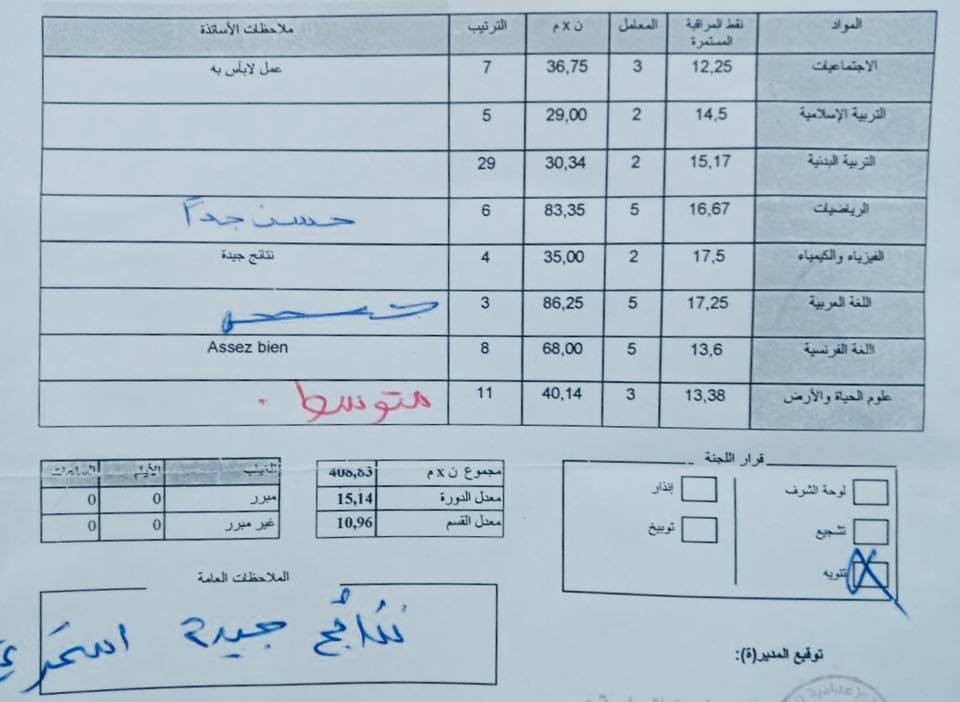 المواد نقط المراقبة المستمرة المعامل ن x م الترتيب ملاحظات الأساتذة
الاجتماعيات 12,25 3 36,75 7 عمل لابأس به
التربية الإسلامية 14,5 2 29,00 5
التربية البدنية 15,17 2 30,34 29
الرياضيات 16,67 5 83,35 6 حسن جداً
الفيزياء والكيمياء 17,5 2 35,00 4 نتائج جيدة
اللغة العربية 17,25 5 86,25 3
اللغة الفرنسية 13,6 5 68,00 8 Assez bien
علوم الحياة والأرض 13,38 3 40,14 11 متوسط .
قرار اللجنة
لوحة الشرف
إنذار
تشجيع
توبيخ
تنويه
مجموع ن x م 408,83
معدل الدورة 15,14
معدل القسم 10,96
الغياب الأيام الساعات
مبرر 0 0
غير مبرر 0 0
الملاحظات العامة
نتائج جيدة استمري
توقيع المدير(ة):